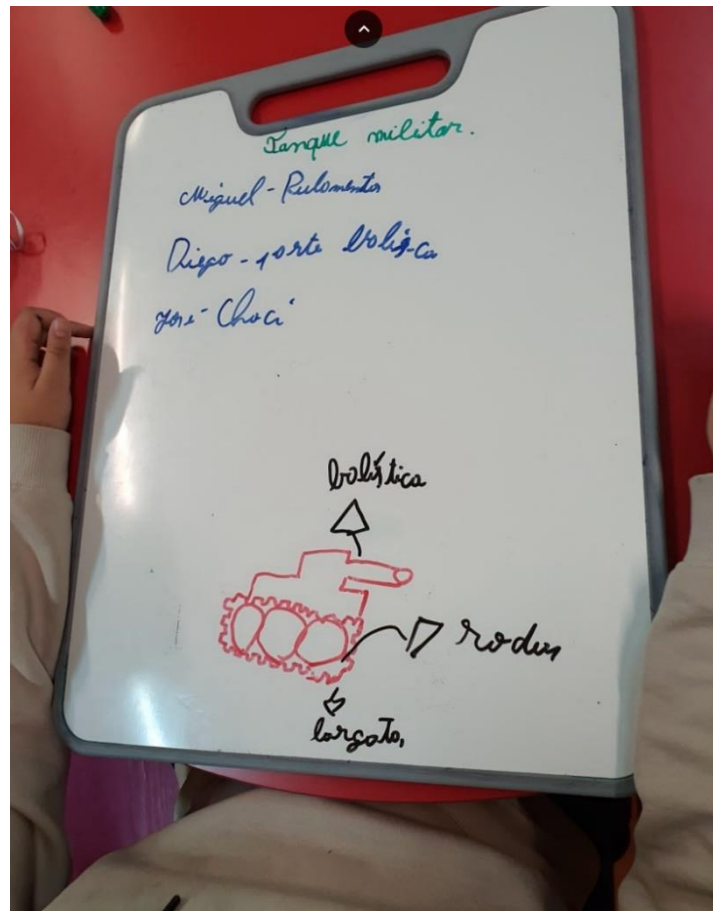 Tanque militar.
Miguel - Rulomentos
Diego - parte balística
José - Choci
balística
rodas
largato,